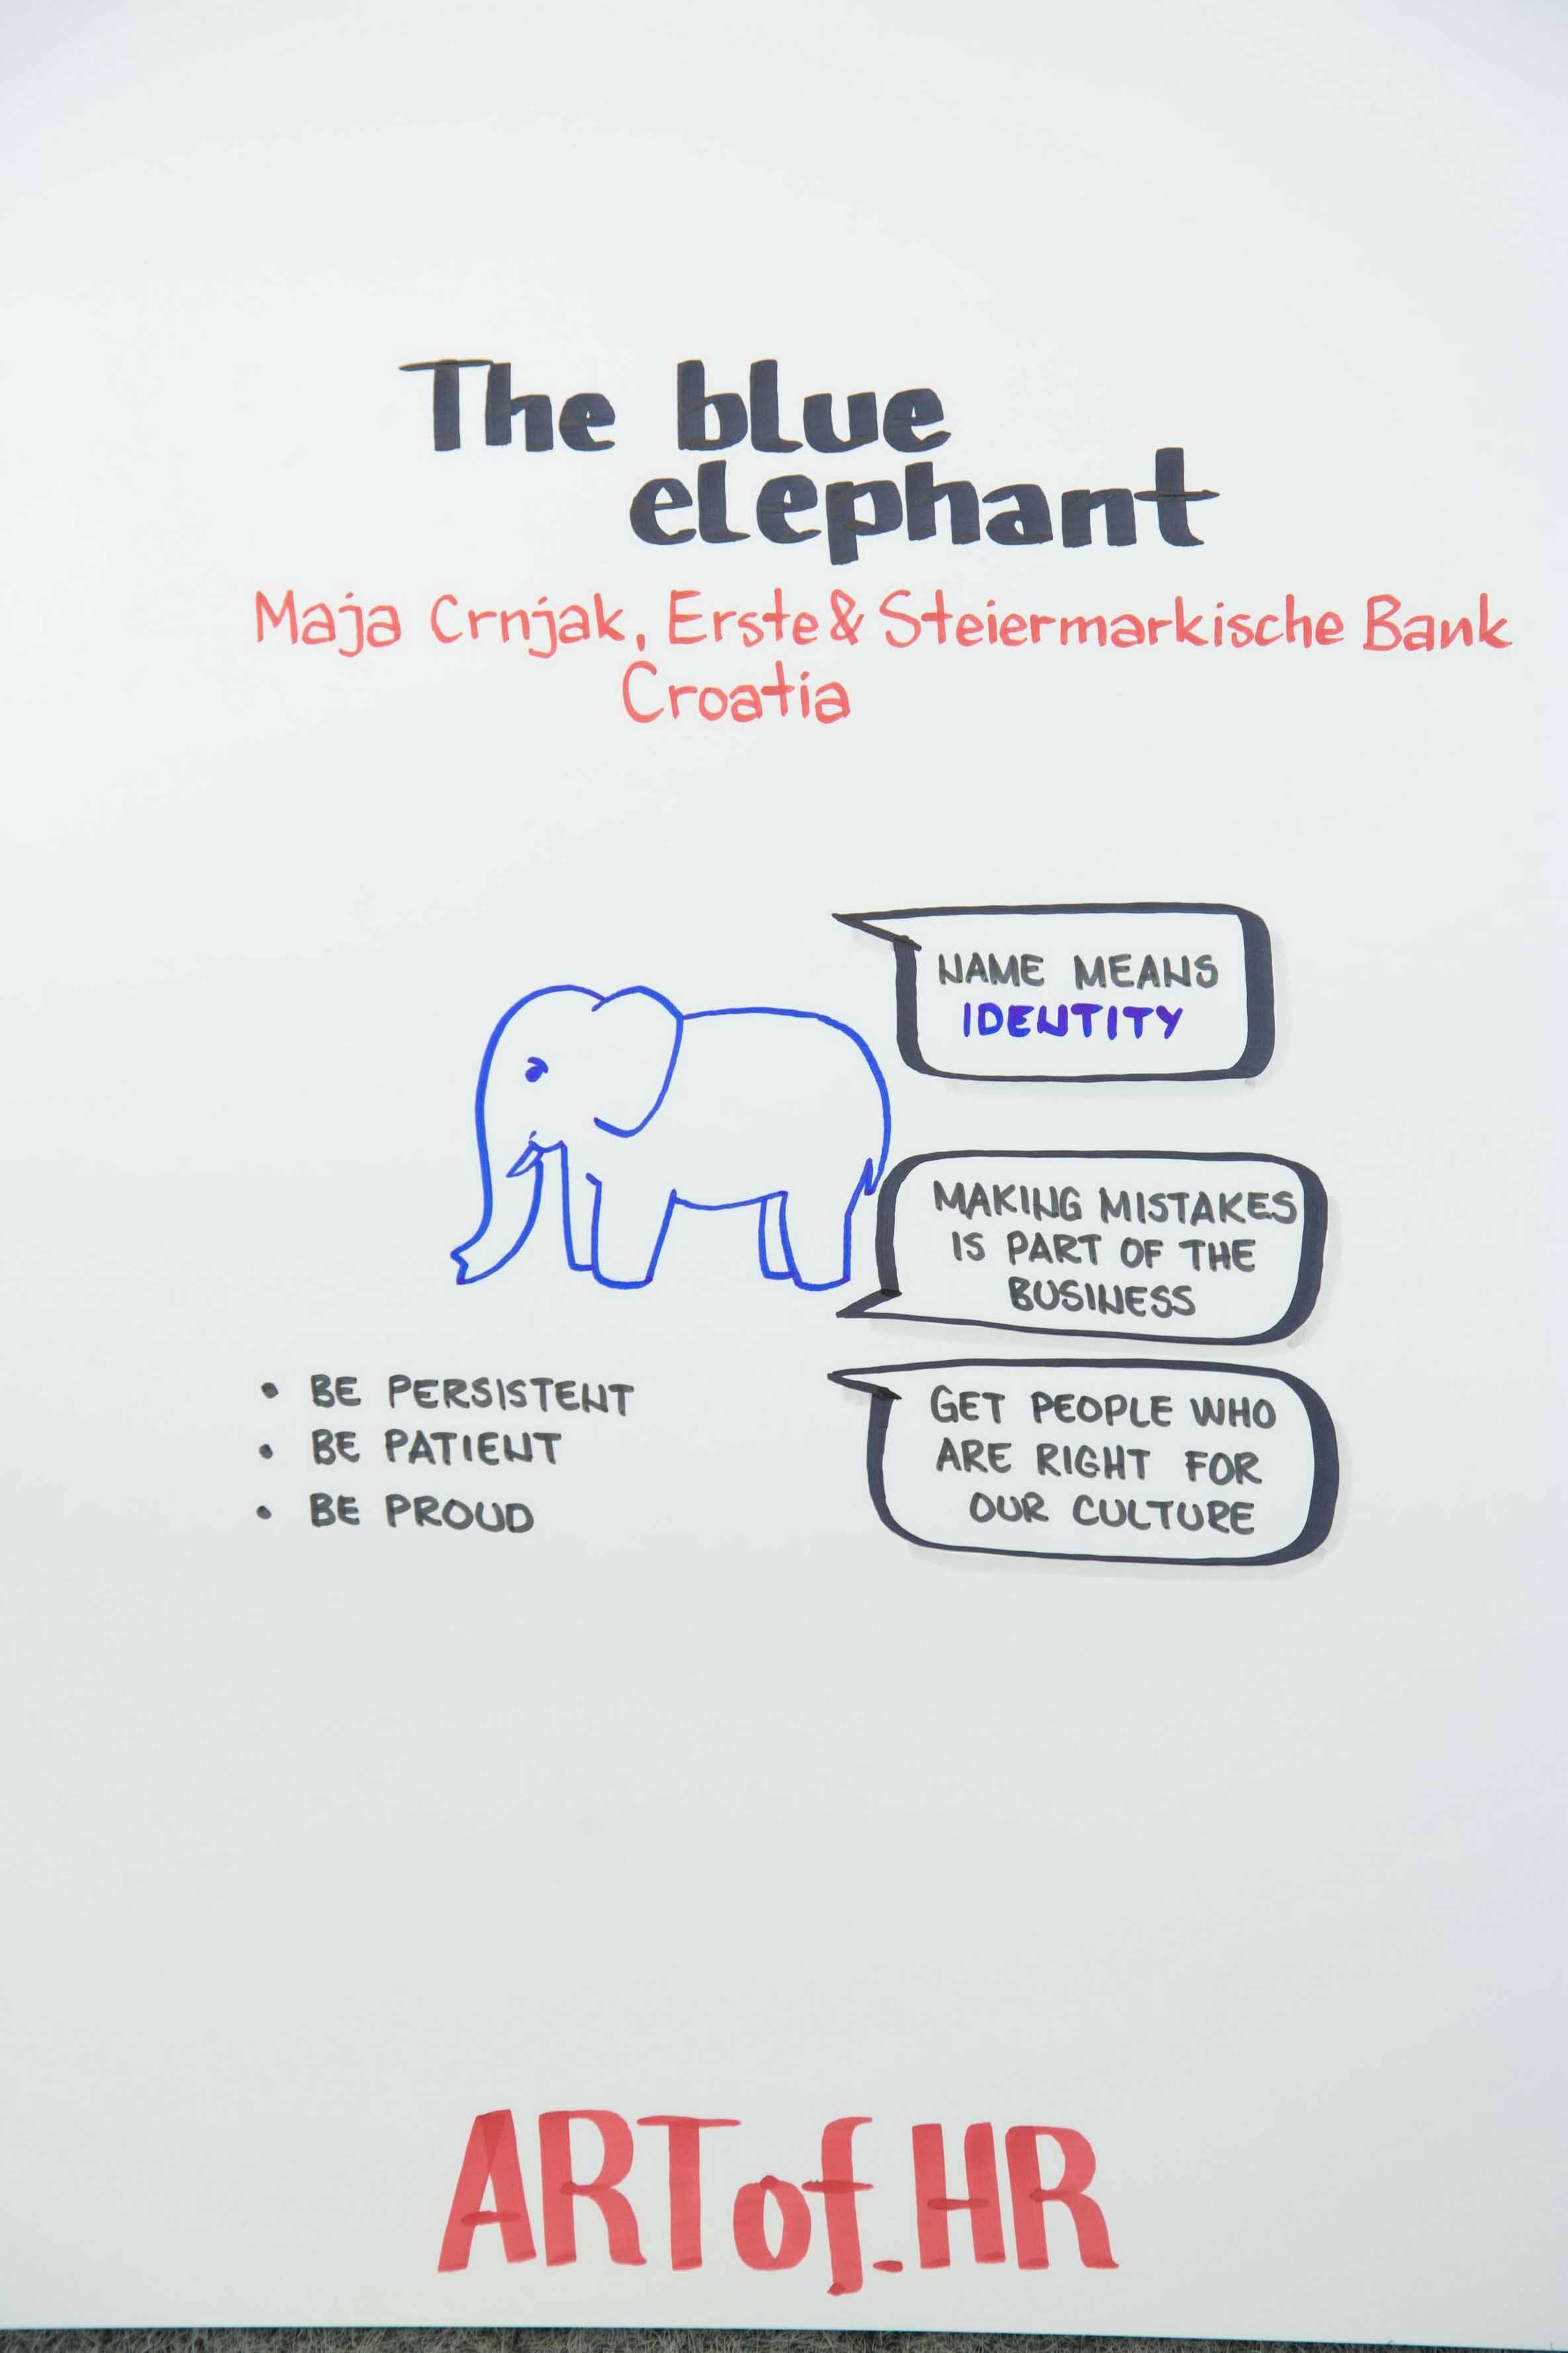 The blue
elephant
Maja Crnjak, Erste & Steiermarkische Bank
Croatia
NAME MEANS
IDENTITY
MAKING MISTAKES
IS PART OF THE
BUSINESS
• BE PERSISTENT
• BE PATIENT
• BE PROUD
GET PEOPLE WHO
ARE RIGHT FOR
OUR CULTURE
ARTof.HR